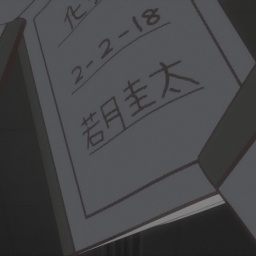 化
2-2-18
若月圭太